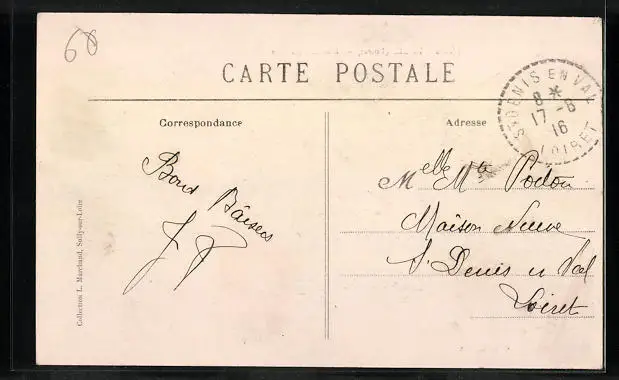 68
CARTE POSTALE
ST DENIS EN VAL
8 *
17 - 6
16
LOIRET
Correspondance
Adresse
Bons Baisers
Melle Mta Poitou
Maison Neuve
St Denis en Val
Loiret
Collection L. Marchand, Sully-sur-Loire